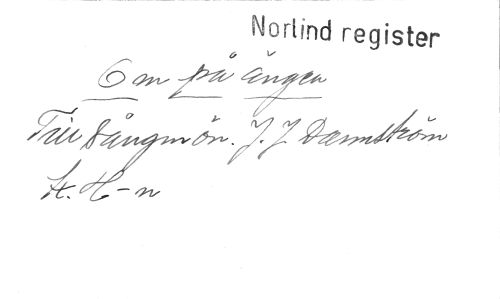 Norlind register
Om på ängen
Till Sångmön. J. J Dannström
H-n